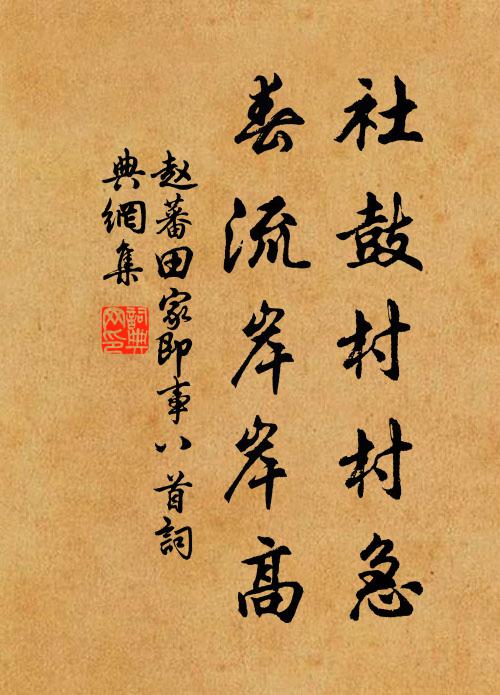 社鼓村村急
春流岸岸高
赵蕃田家即事八首詞
典網集
詞典网印